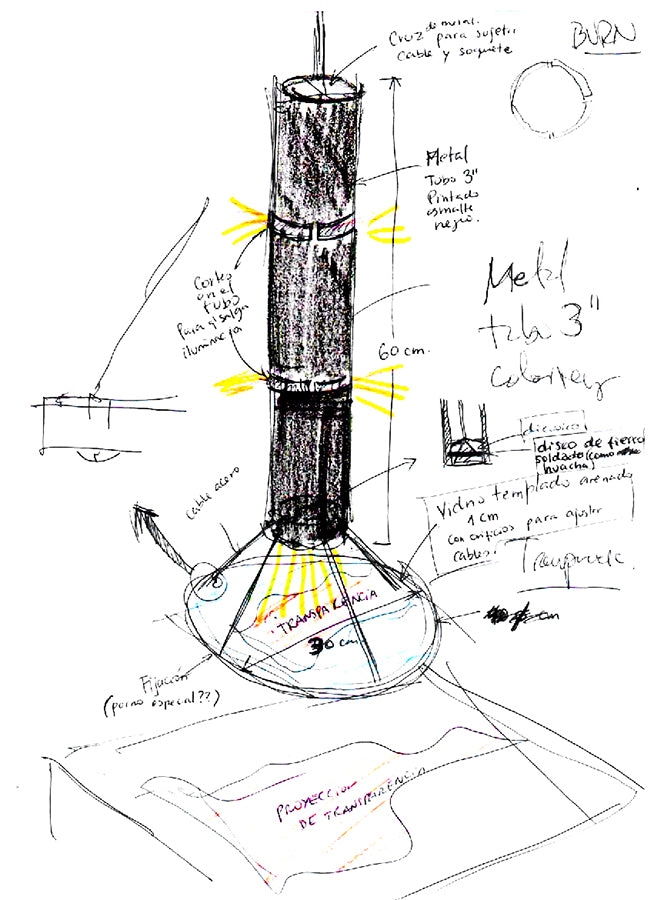 BURN
Cruz de metal.
para sujetar
cable y soquete
Metal
Tubo 3"
Pintado
esmalte
negro.
Cortes
en el
tubo
para q' salga
iluminacia
Metal
tubo 3"
60 cm.
dicroico
disco de fierro
soldado (como
huacha)
Vidrio templado arenado
1 cm
con orificios para ajustar
cables.
cable acero
TRANSPARENCIA
30 cm.
cm
Fijación
(perno especial??)
PROYECCION
DE TRANSPARENCIA